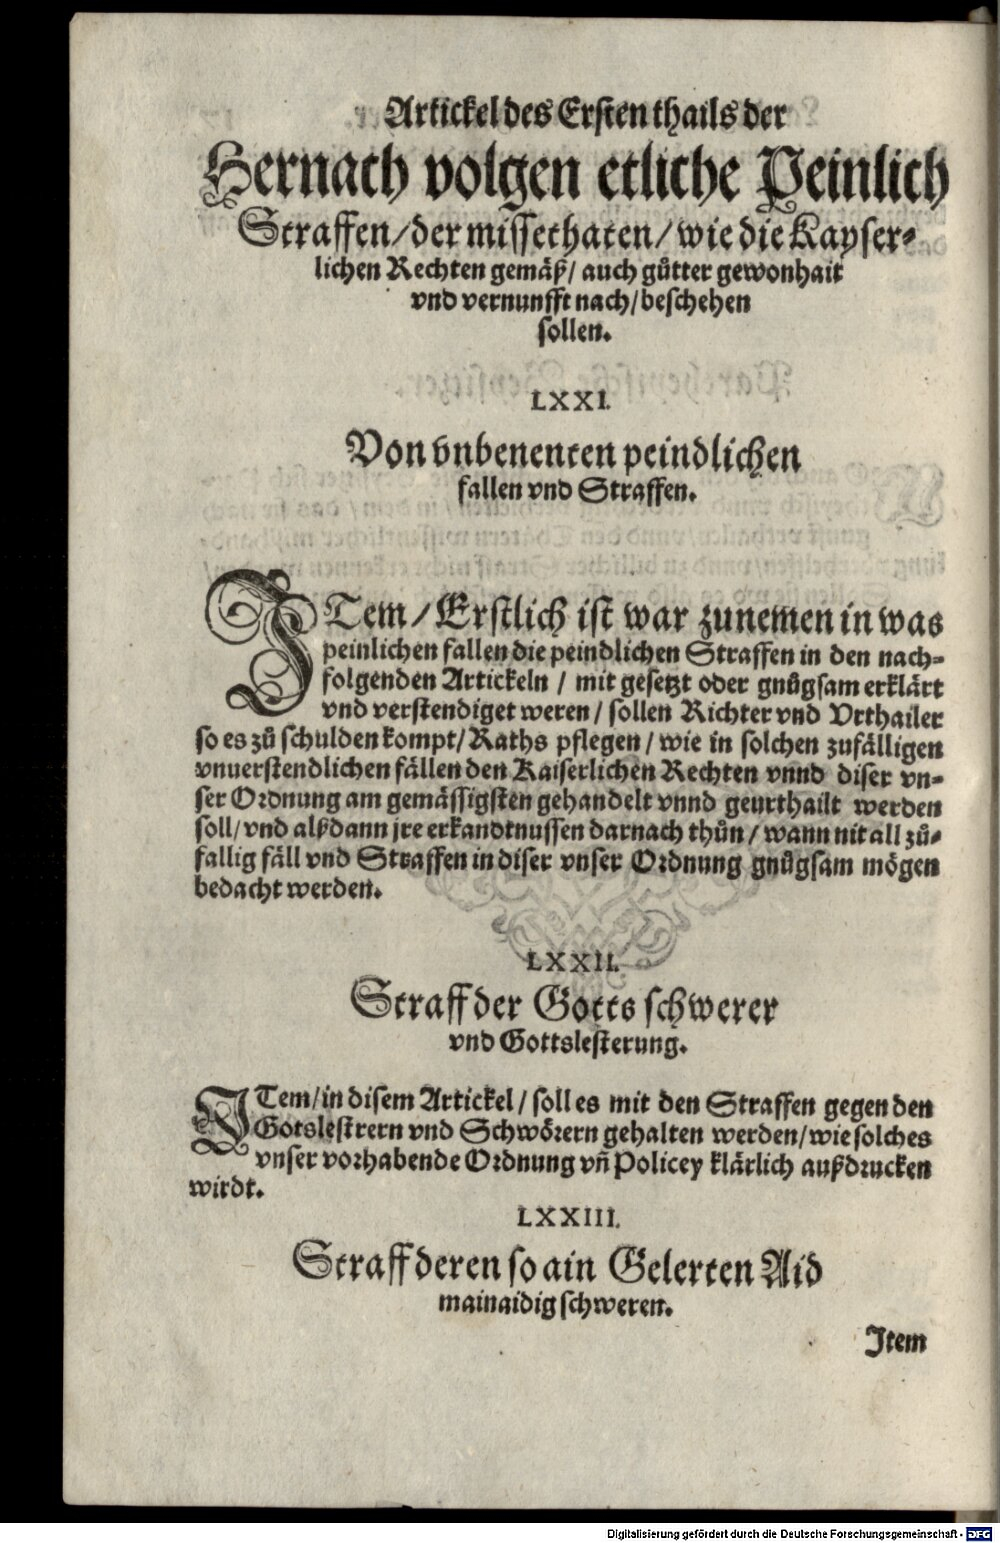 Artickel des Ersten thails der
Hernach volgen etliche Peinlich
Straffen/der missethaten/wie die Kayser-
lichen Rechten gemäß/ auch gůtter gewonhait
vnd vernunfft nach/beschehen
sollen.
LXXI.
Von vnbenenten peindlichen
fallen vnd Straffen.
ITem/Erstlich ist war zunemen in was
peinlichen fallen die peindlichen Straffen in den nach-
folgenden Artickeln / mit gesetzt oder gnůgsam erklärt
vnd verstendiget weren/ sollen Richter vnd Vrthailer
so es zů schulden kompt/ Raths pflegen/ wie in solchen zufälligen
vnuerstendlichen fällen den Kaiserlichen Rechten vnnd diser vn-
ser Ordnung am gemässigsten gehandelt vnnd geurthailt werden
soll/ vnd alßdann jre erkandtnussen darnach thůn/ wann nit all zů-
fallig fäll vnd Straffen in diser vnser Ordnung gnůgsam mögen
bedacht werden.
LXXII.
Straff der Gotts schwerer
vnd Gottslesterung.
ITem/in disem Artickel/ soll es mit den Straffen gegen den
Gotslestrern vnd Schwörern gehalten werden/wie solches
vnser vorhabende Ordnung vñ Policey klärlich außdrucken
wirdt.
LXXIII.
Straff deren so ain Gelerten Aid
mainaidig schweren.
Item
Digitalisierung gefördert durch die Deutsche Forschungsgemeinschaft - DFG